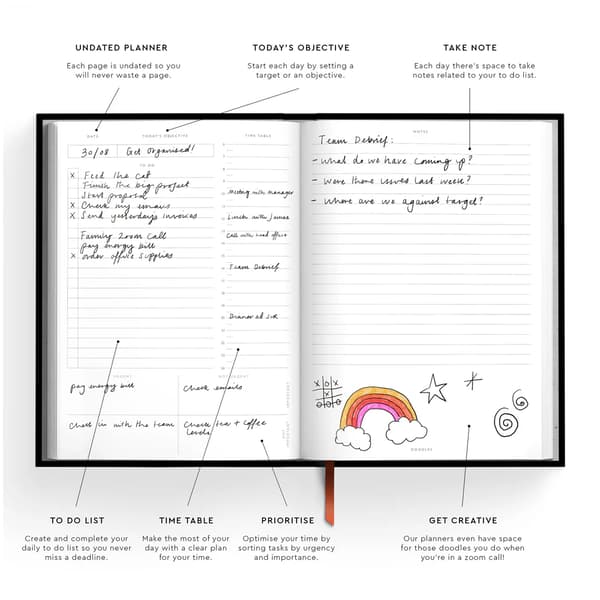 UNDATED PLANNER
Each page is undated so you
will never waste a page.
TODAY'S OBJECTIVE
Start each day by setting a
target or an objective.
TAKE NOTE
Each day there's space to take
notes related to your to do list.
DATE
TODAY'S OBJECTIVE
TIME TABLE
30/08
Get Organised!
TO DO
x Feed the cat
Finish the big project
Start proposal
x Check my emails
x Send yesterdays invoices
Family Zoom call
pay energy bill
x order office supplies
Meeting with manager
Lunch with James
Call with head office
Team Debrief
Dinner at six
URGENT
NOT URGENT
pay energy bill
Check emails
IMPORTANT
Check in with the team
Check tea + coffee
levels
NOT
IMPORTANT
NOTES
Team Debrief:
- what do we have coming up?
- were there issues last week?
- where are we against target?
X O X
X
O O O
DOODLES
TO DO LIST
Create and complete your
daily to do list so you never
miss a deadline.
TIME TABLE
Make the most of your
day with a clear plan
for your time.
PRIORITISE
Optimise your time by
sorting tasks by urgency
and importance.
GET CREATIVE
Our planners even have space
for those doodles you do when
you're in a zoom call!